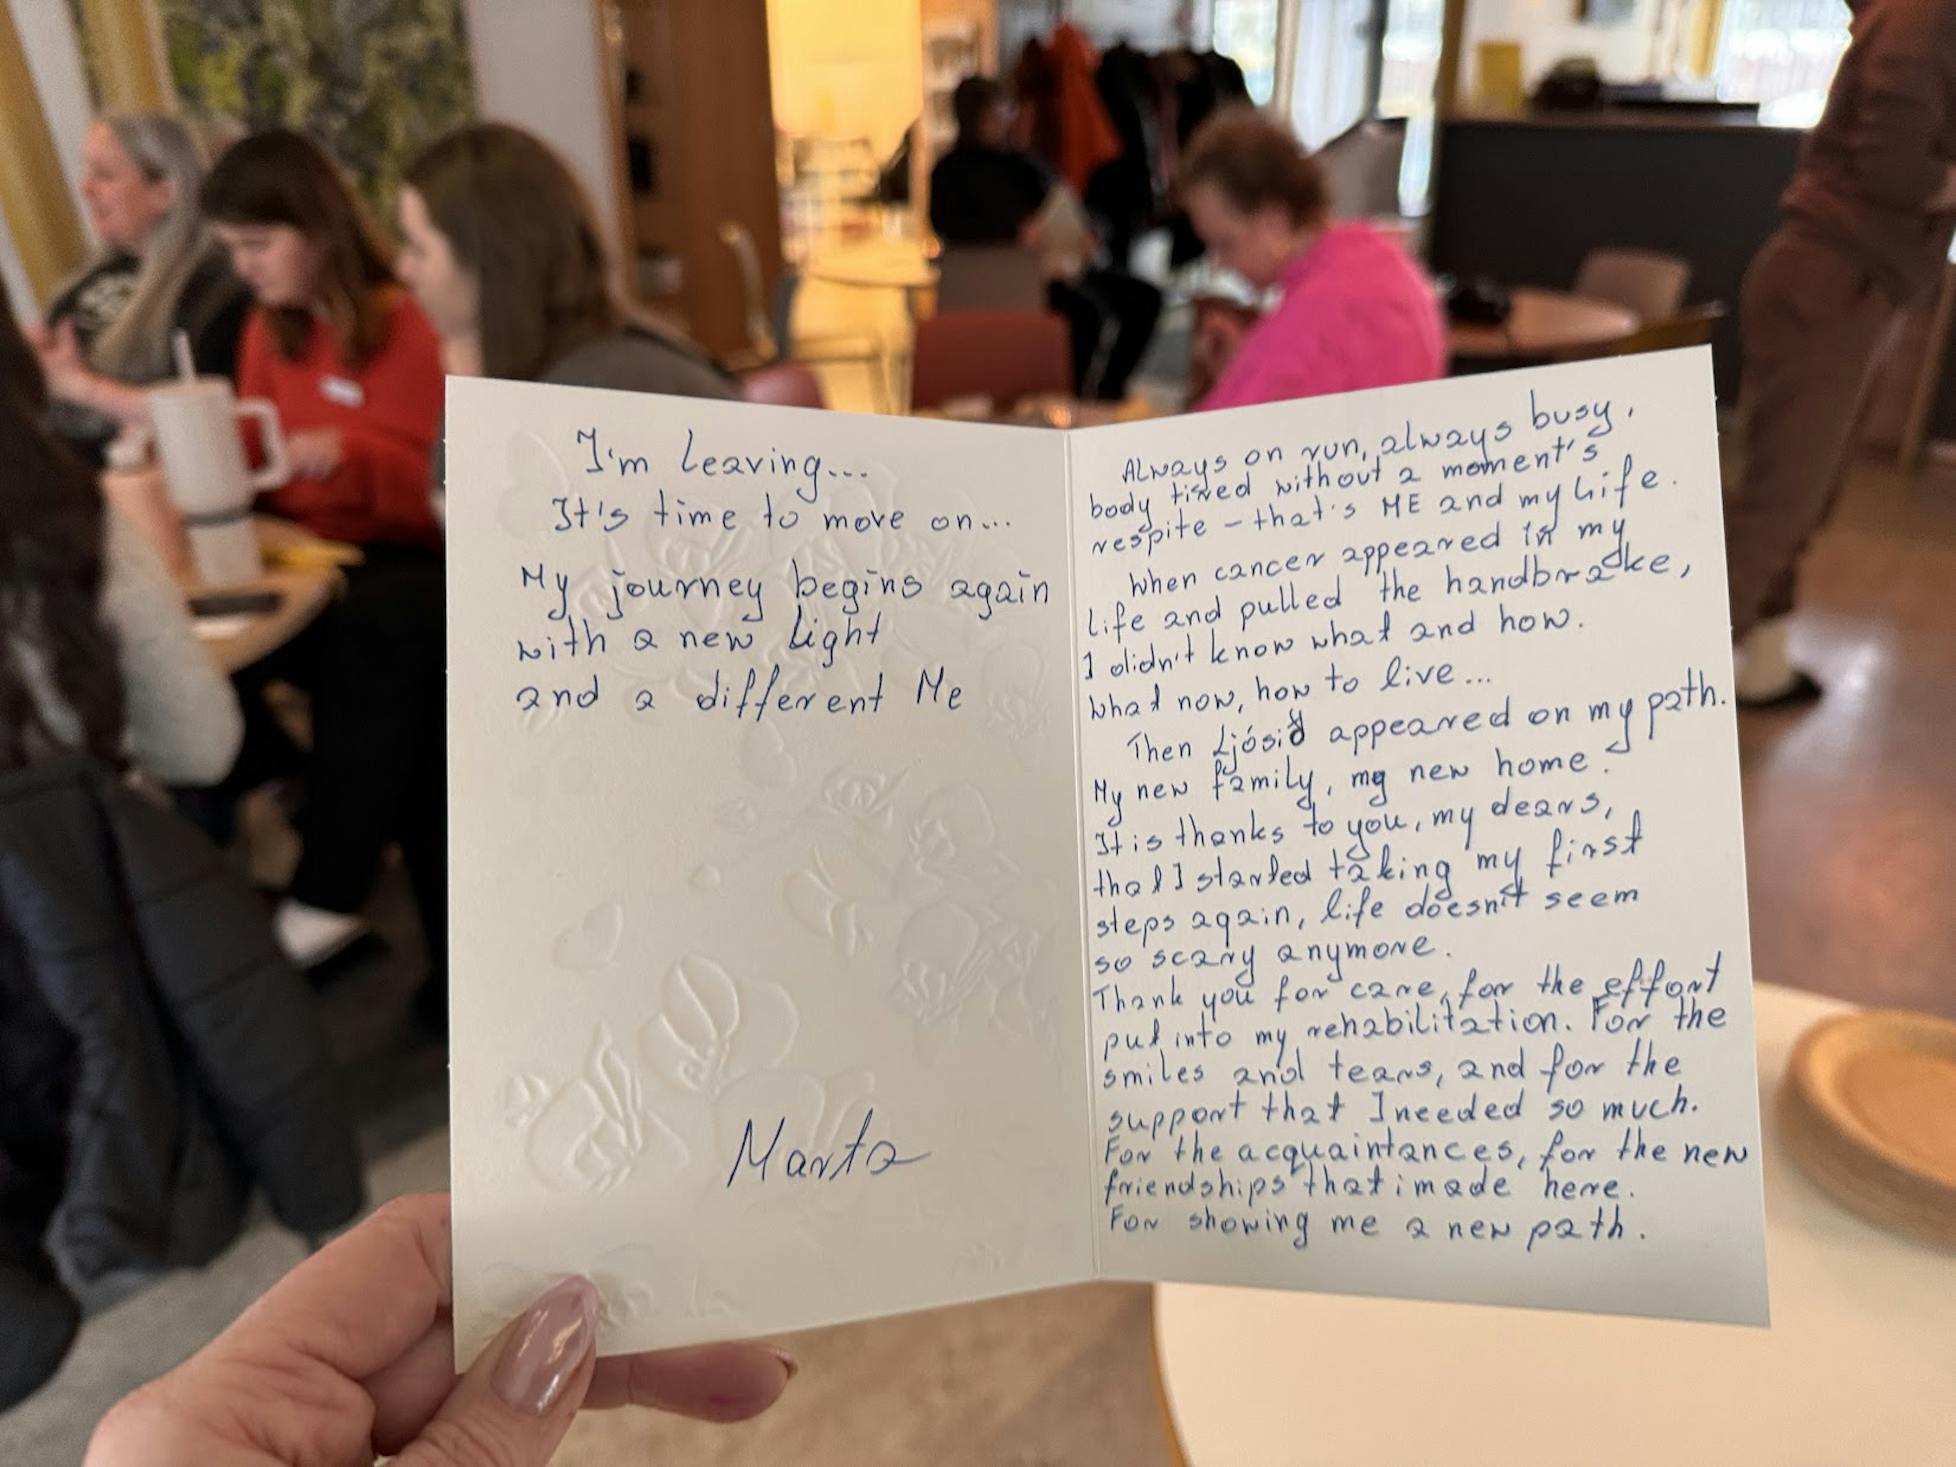 I'm leaving...
It's time to move on...
My journey begins again
with a new light
and a different Me
Marta
Always on run, always busy,
body tired without a moment's
respite - that's ME and my life.
When cancer appeared in my
life and pulled the handbrake,
I didn't know what and how.
What now, how to live...
Then Ljósið appeared on my path.
My new family, my new home.
It is thanks to you, my dears,
that I started taking my first
steps again, life doesn't seem
so scary anymore.
Thank you for care, for the effort
put into my rehabilitation. For the
smiles and tears, and for the
support that I needed so much.
For the acquaintances, for the new
friendships that i made here.
For showing me a new path.